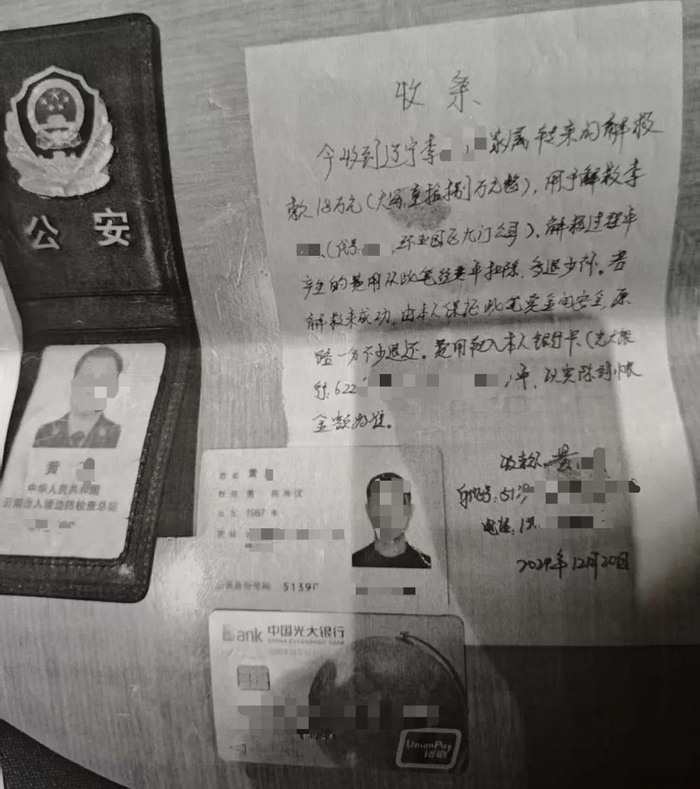 收条
今收到辽宁李 家属转来的解救
款18万元(大写:壹拾捌万元整),用于解救李
(代号: , 园区大门公司)。解救过程中
产生的费用从此笔经费中扣除,多退少补。若
解救未成功,由本人保证此笔资金的安全,原
路一分不少退还。费用转入本人银行卡(光大银
行:622 )中,以实际到账
金额为准。
收款人:黄
身份证号:5139
电话:1
2024年12月20日
公安
黄
中华人民共和国
云南出入境边防检查总站
姓名 黄
性别 男 民族 汉
出生 1987 年
住址
公民身份号码 5139
Bank 中国光大银行
CHINA EVERBRIGHT BANK
UnionPay
银联